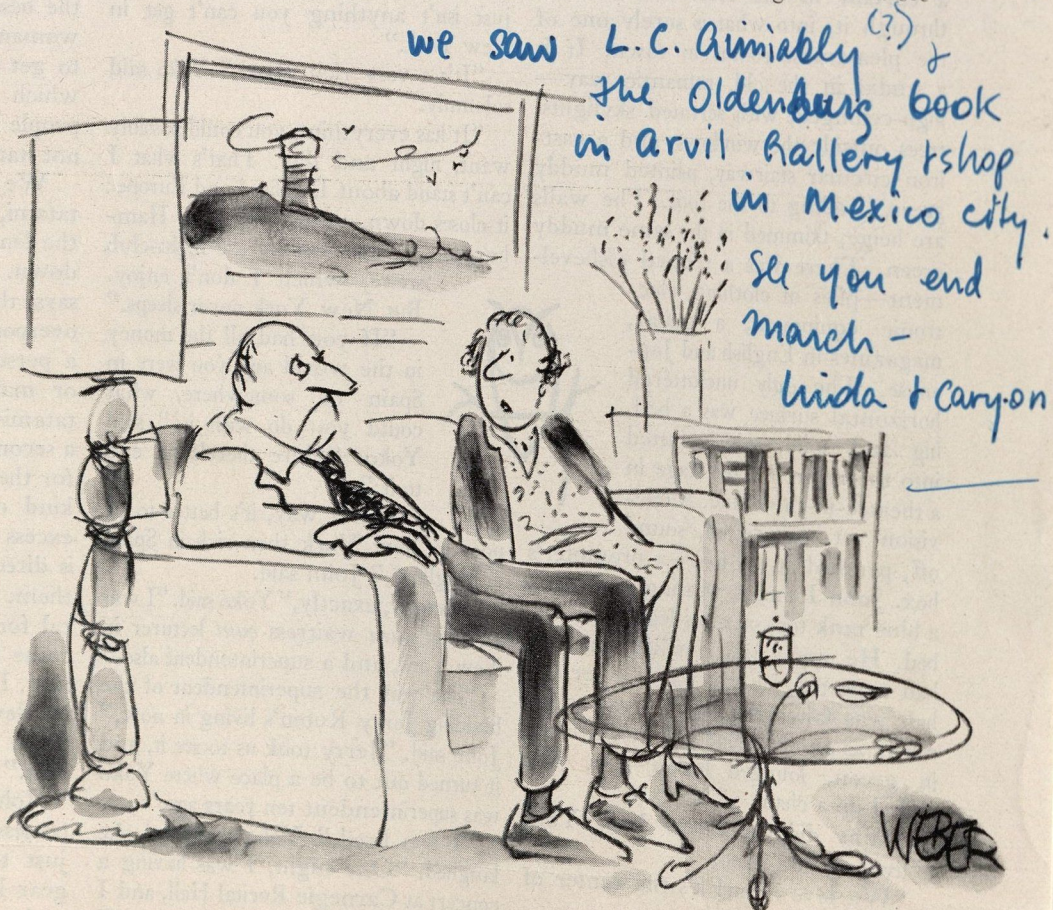 we saw L.C. Armiably (?) &
the Oldenburg book
in Arvil Gallery & shop
in Mexico city.
See you end
march -
Linda & Cary-on
WEBER